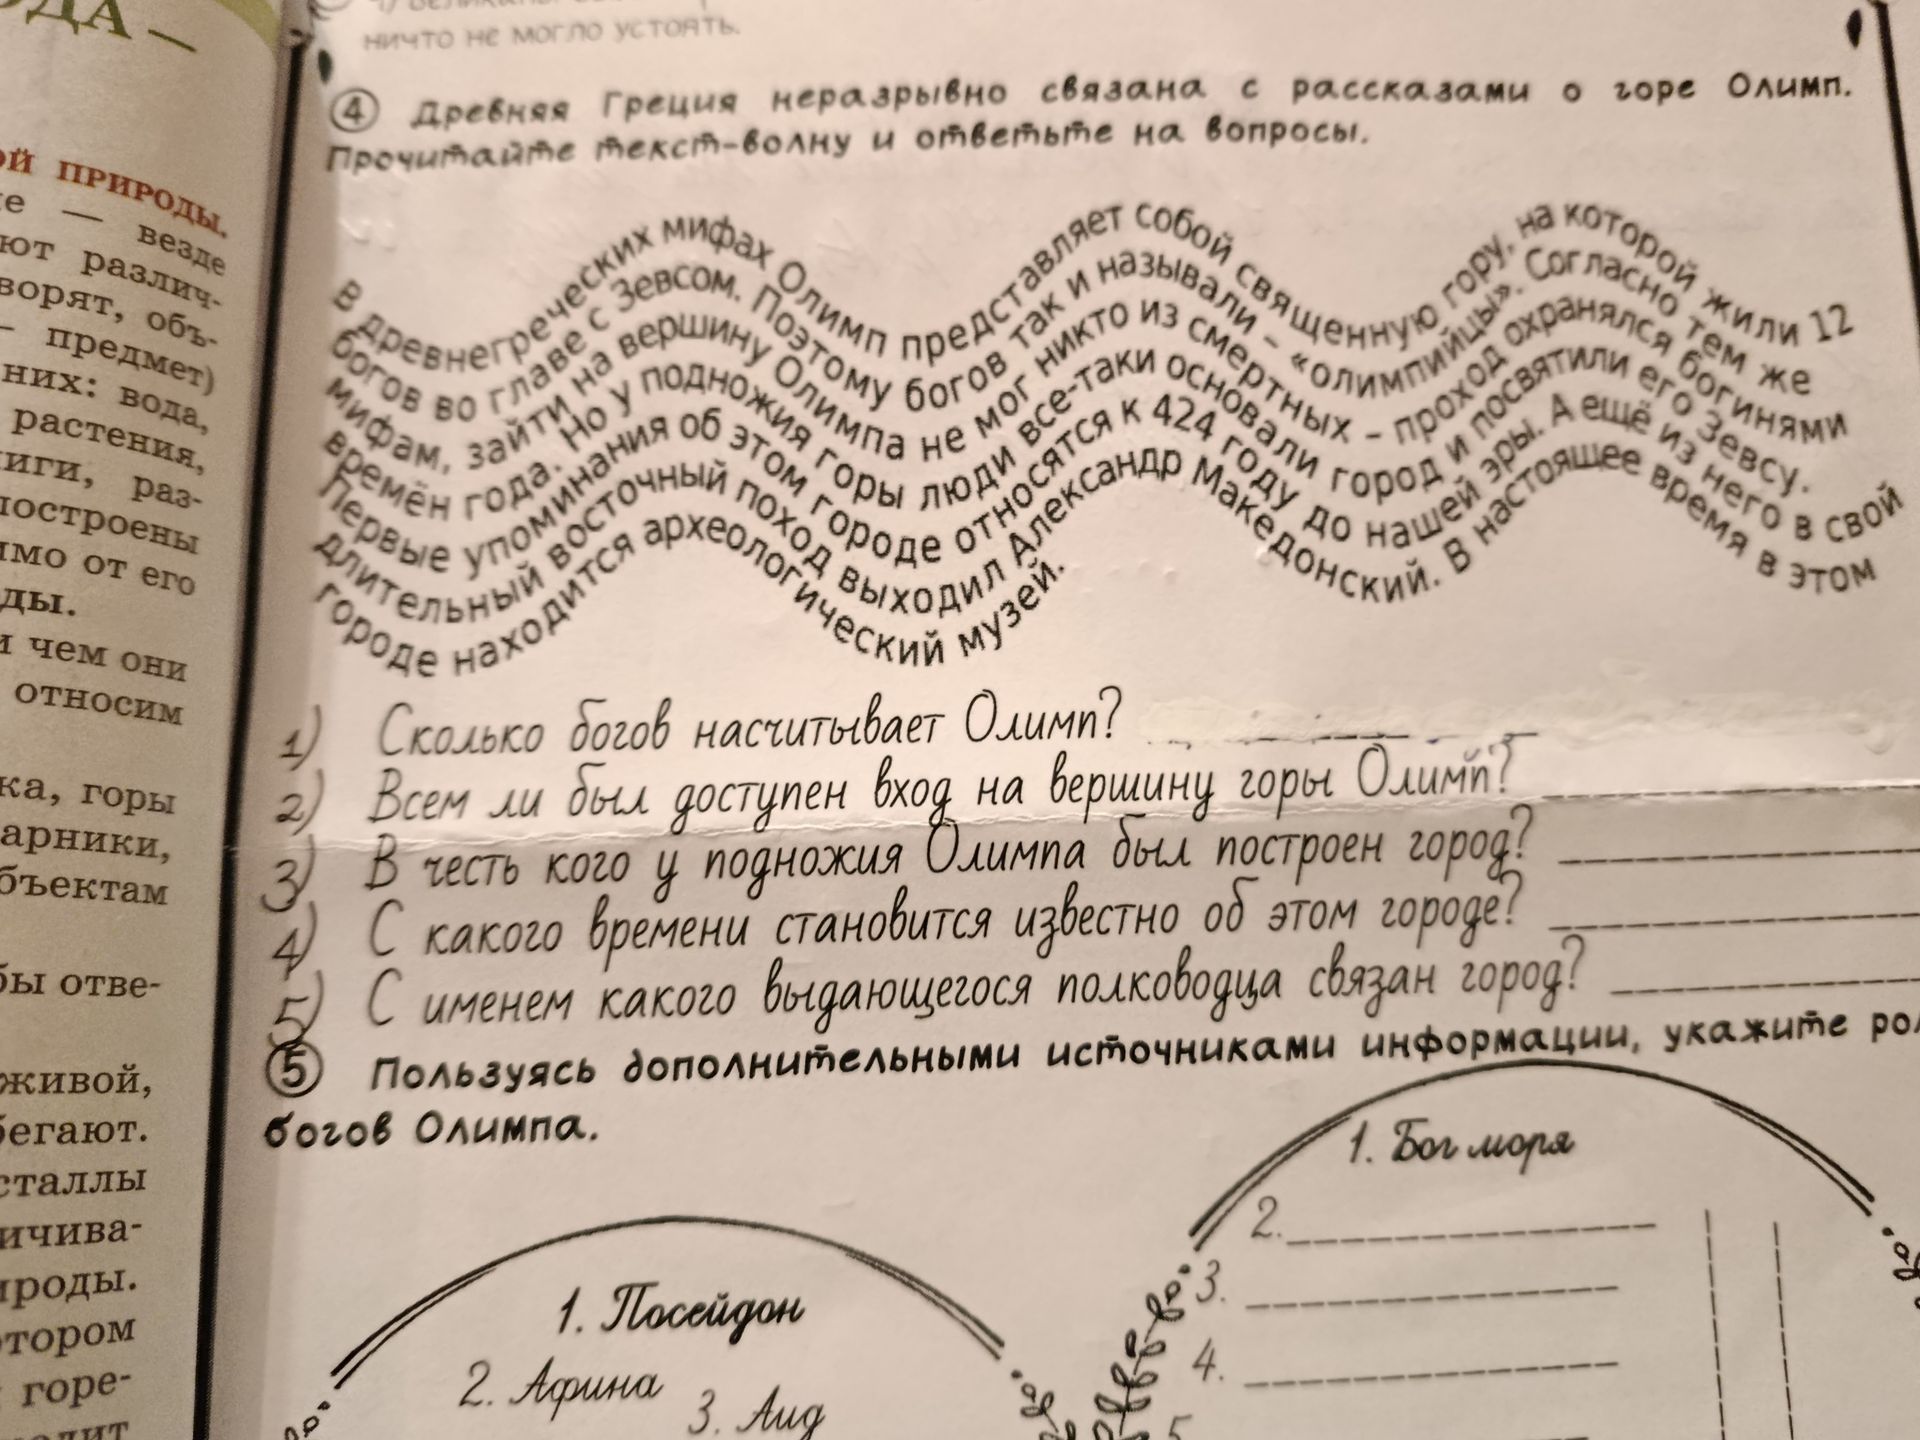 ОДА –
ой ПРИРОДЫ.
е — везде
ют различ-
ворят, объ-
– предмет)
них: вода,
растения,
иги, раз-
построены
имо от его
ды.
и чем они
относим
ка, горы
арники,
бъектам
бы отве-
живой,
бегают.
сталлы
ичива-
ироды.
отором
горе-
ничто не могло устоять.
4 Древняя Греция неразрывно связана с рассказами о горе Олимп.
Прочитайте текст-волну и ответьте на вопросы.
В древнегреческих мифах Олимп представляет собой священную гору, на которой жили 12
богов во главе с Зевсом. Поэтому богов так и называли – «олимпийцы». Согласно тем же
мифам, зайти на вершину Олимпа не мог никто из смертных – проход охранялся богинями
времён года. Но у подножия горы люди все-таки основали город и посвятили его Зевсу.
Первые упоминания об этом городе относятся к 424 году до нашей эры. А ещё из него в свой
длительный восточный поход выходил Александр Македонский. В настоящее время в этом
городе находится археологический музей.
1) Сколько богов насчитывает Олимп?
2) Всем ли был доступен вход на вершину горы Олимп?
3) В честь кого у подножия Олимпа был построен город?
4) С какого времени становится известно об этом городе?
5) С именем какого выдающегося полководца связан город?
5 Пользуясь дополнительными источниками информации, укажите рол
богов Олимпа.
1. Посейдон
2. Афина
3. Аид
1. Бог моря
2.
3.
4.
5